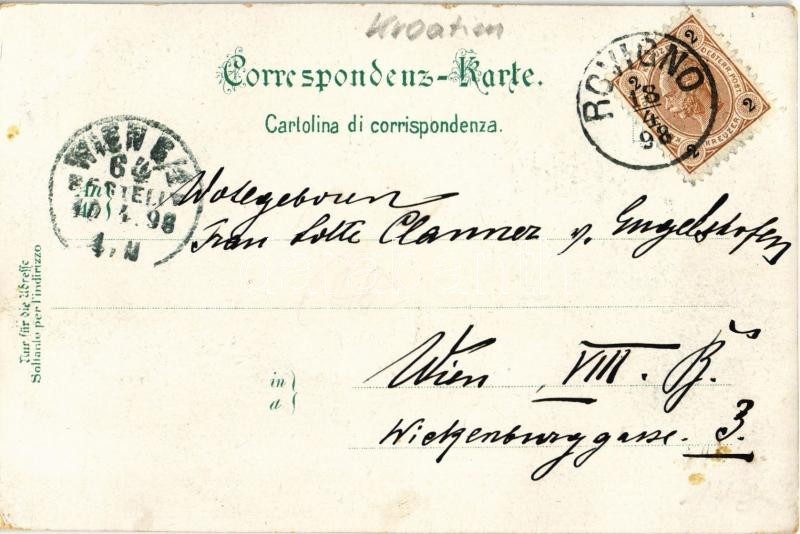 Kroatien
Correspondenz-Karte.
Cartolina di corrispondenza.
ROVIGNO
98
2 KREUZER 2
WIEN 8/1
64
BESTELLT
10 4. 98
1. N
An
Wolgeboren
Frau Lotte Clanner v. Engelshofen
Nur für die Adresse
Soltanto per l'indirizzo
in
a
Wien VIII. B.
Wickenburggasse. 3.